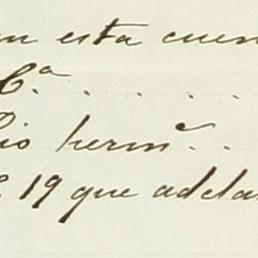 en esta cuen
C.ª . . . .
io herm.º . .
e 19 que adela